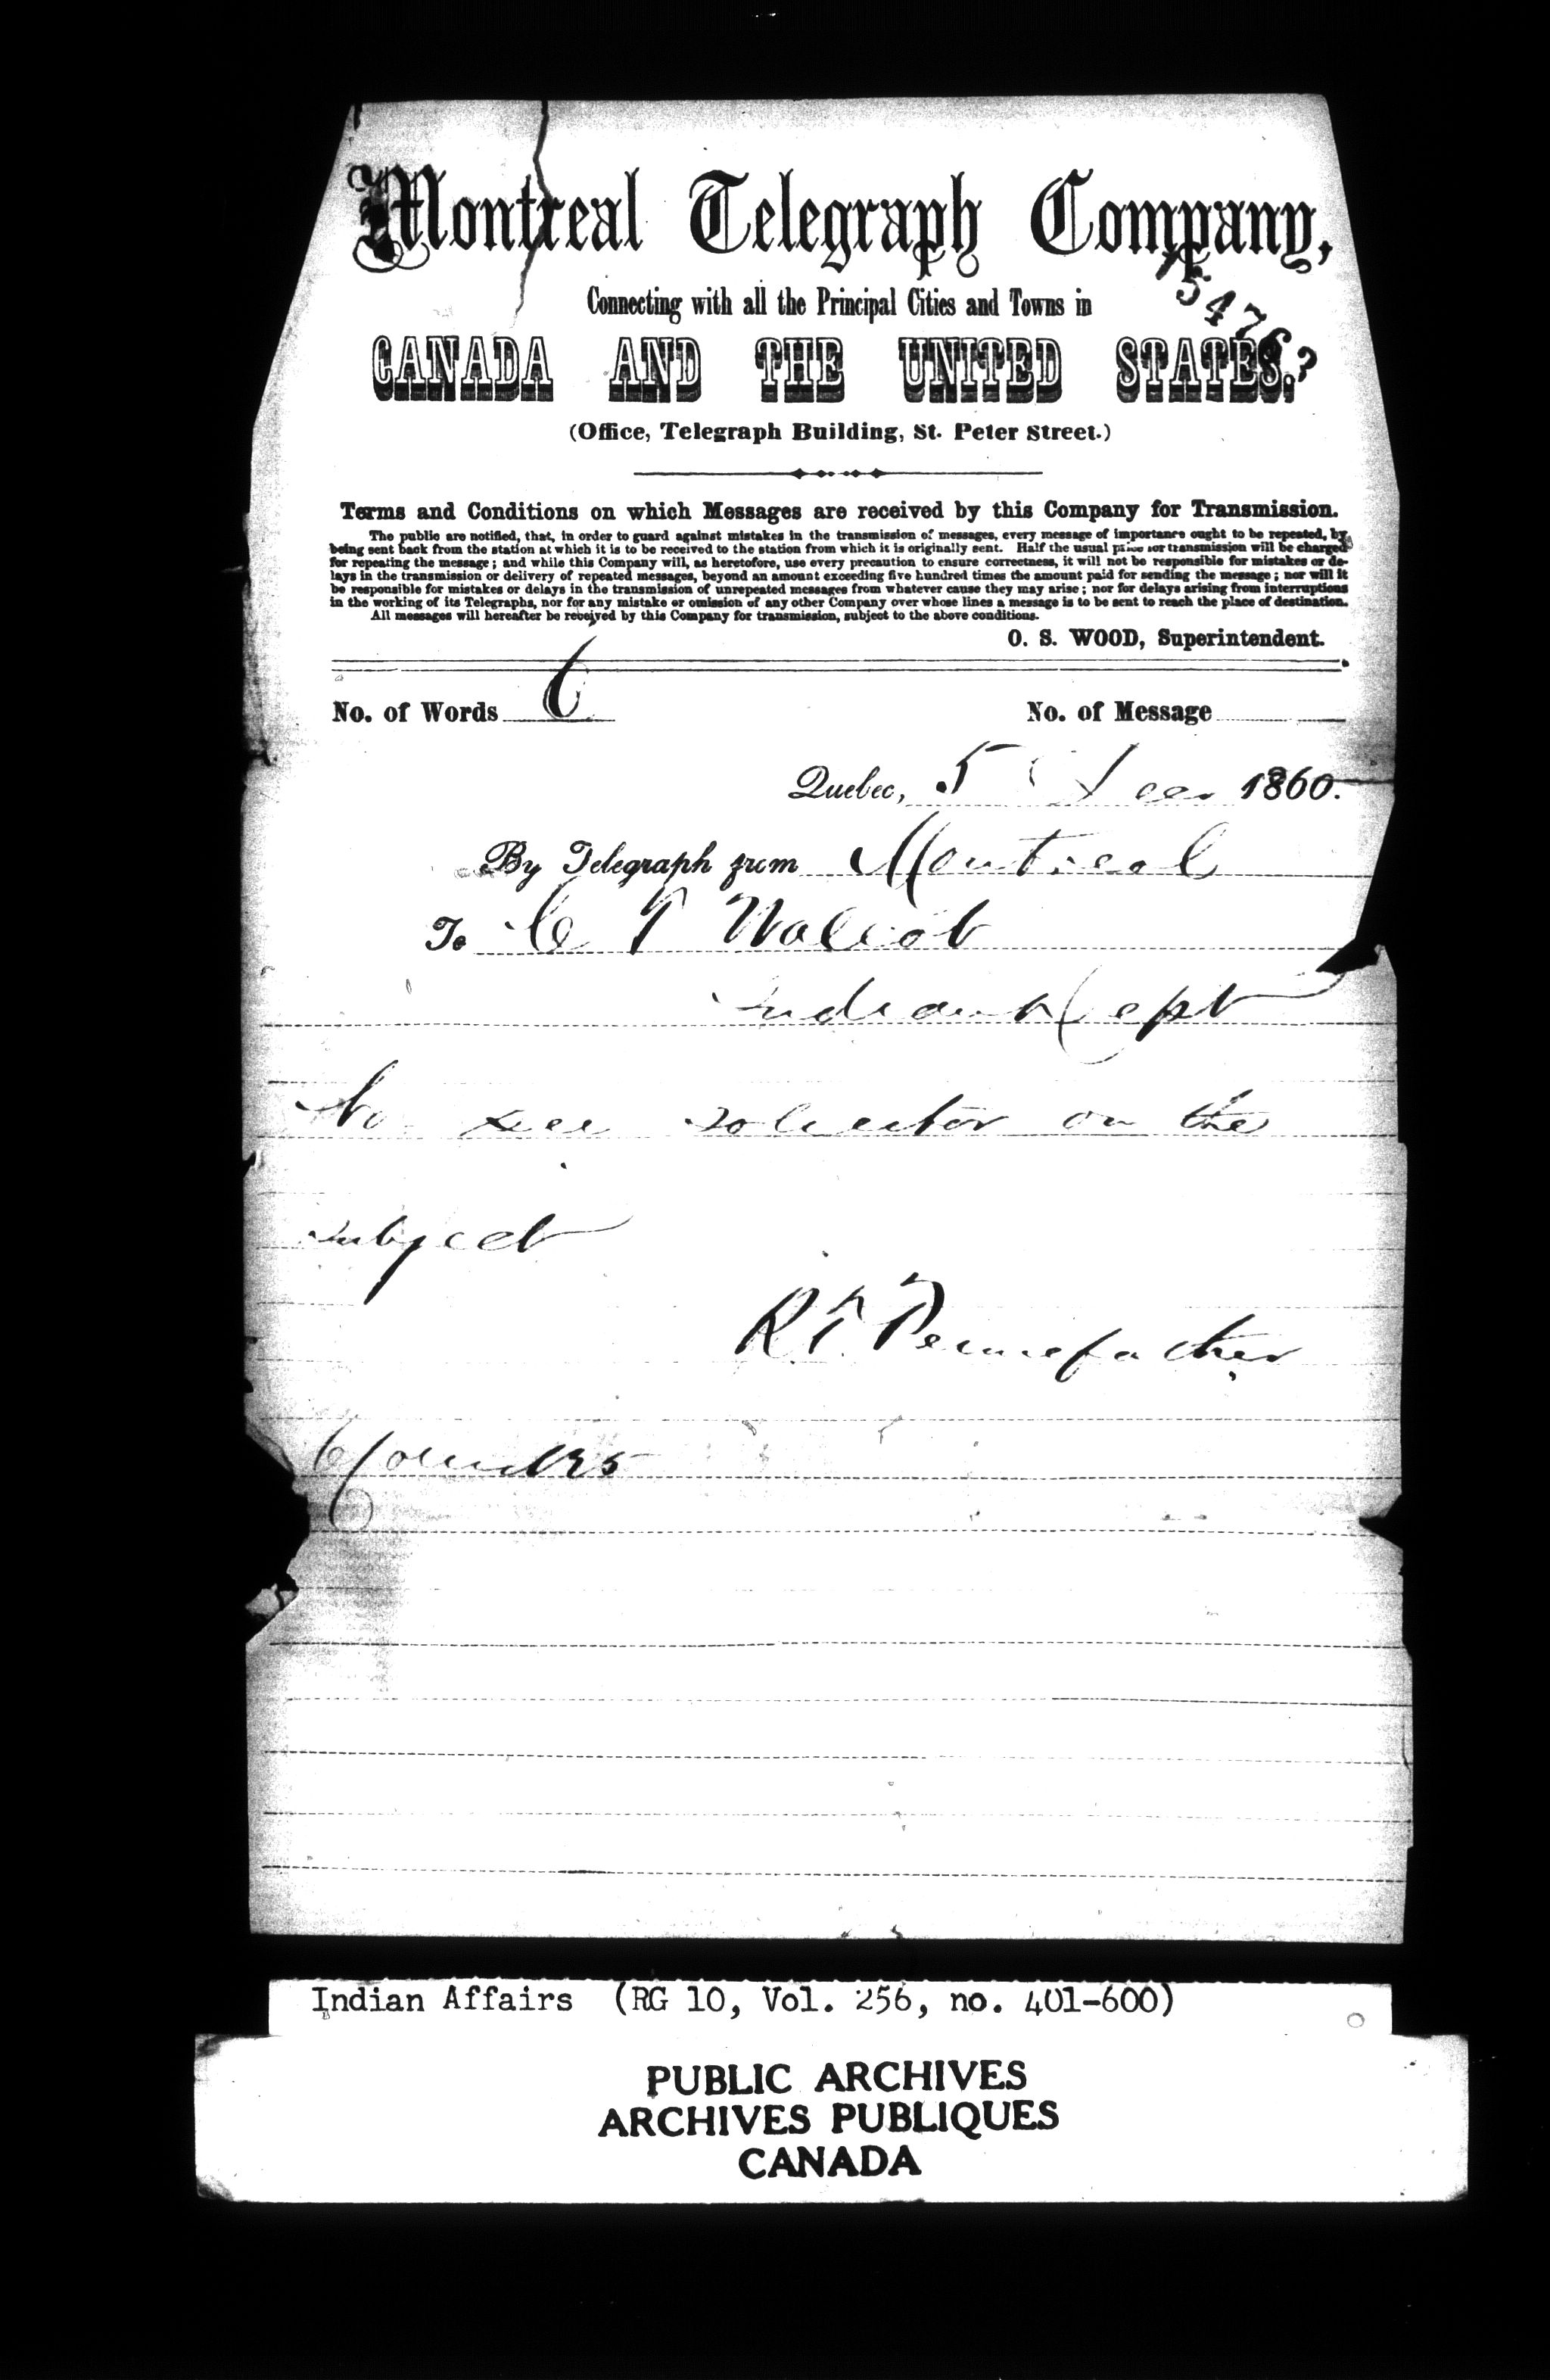 Montreal Telegraph Company,
154763
Connecting with all the Principal Cities and Towns in
CANADA AND THE UNITED STATES.
(Office, Telegraph Building, St. Peter Street.)
Terms and Conditions on which Messages are received by this Company for Transmission.
The public are notified, that, in order to guard against mistakes in the transmission of messages, every message of importance ought to be repeated, by
being sent back from the station at which it is to be received to the station from which it is originally sent. Half the usual price for transmission will be charged
for repeating the message; and while this Company will, as heretofore, use every precaution to ensure correctness, it will not be responsible for mistakes or de-
lays in the transmission or delivery of repeated messages, beyond an amount exceeding five hundred times the amount paid for sending the message; nor will it
be responsible for mistakes or delays in the transmission of unrepeated messages from whatever cause they may arise; nor for delays arising from interruptions
in the working of its Telegraphs, nor for any mistake or omission of any other Company over whose lines a message is to be sent to reach the place of destination.
All messages will hereafter be received by this Company for transmission, subject to the above conditions.
O. S. WOOD, Superintendent.
No. of Words 6 No. of Message
Quebec, 5 Dec 1860.
By Telegraph from Montreal
To C T Walcot
Indian Dept
No see solicitor on the
subject
R. T. Pennefather
Indian Affairs (RG 10, Vol. 256, no. 401-600)
PUBLIC ARCHIVES
ARCHIVES PUBLIQUES
CANADA